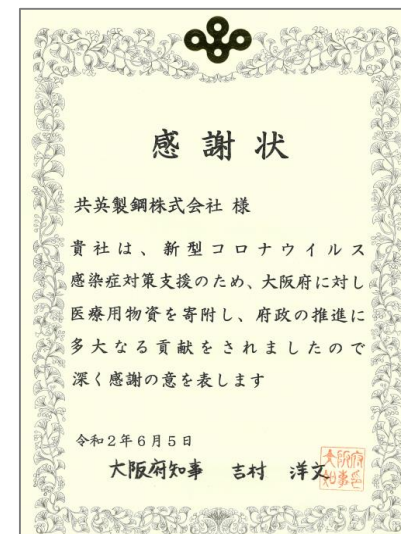 感謝状
共英製鋼株式会社 様
貴社は、新型コロナウイルス
感染症対策支援のため、大阪府に対し
医療用物資を寄附し、府政の推進に
多大なる貢献をされましたので
深く感謝の意を表します
令和2年6月5日
大阪府知事 吉村 洋文
大阪府
知事之印